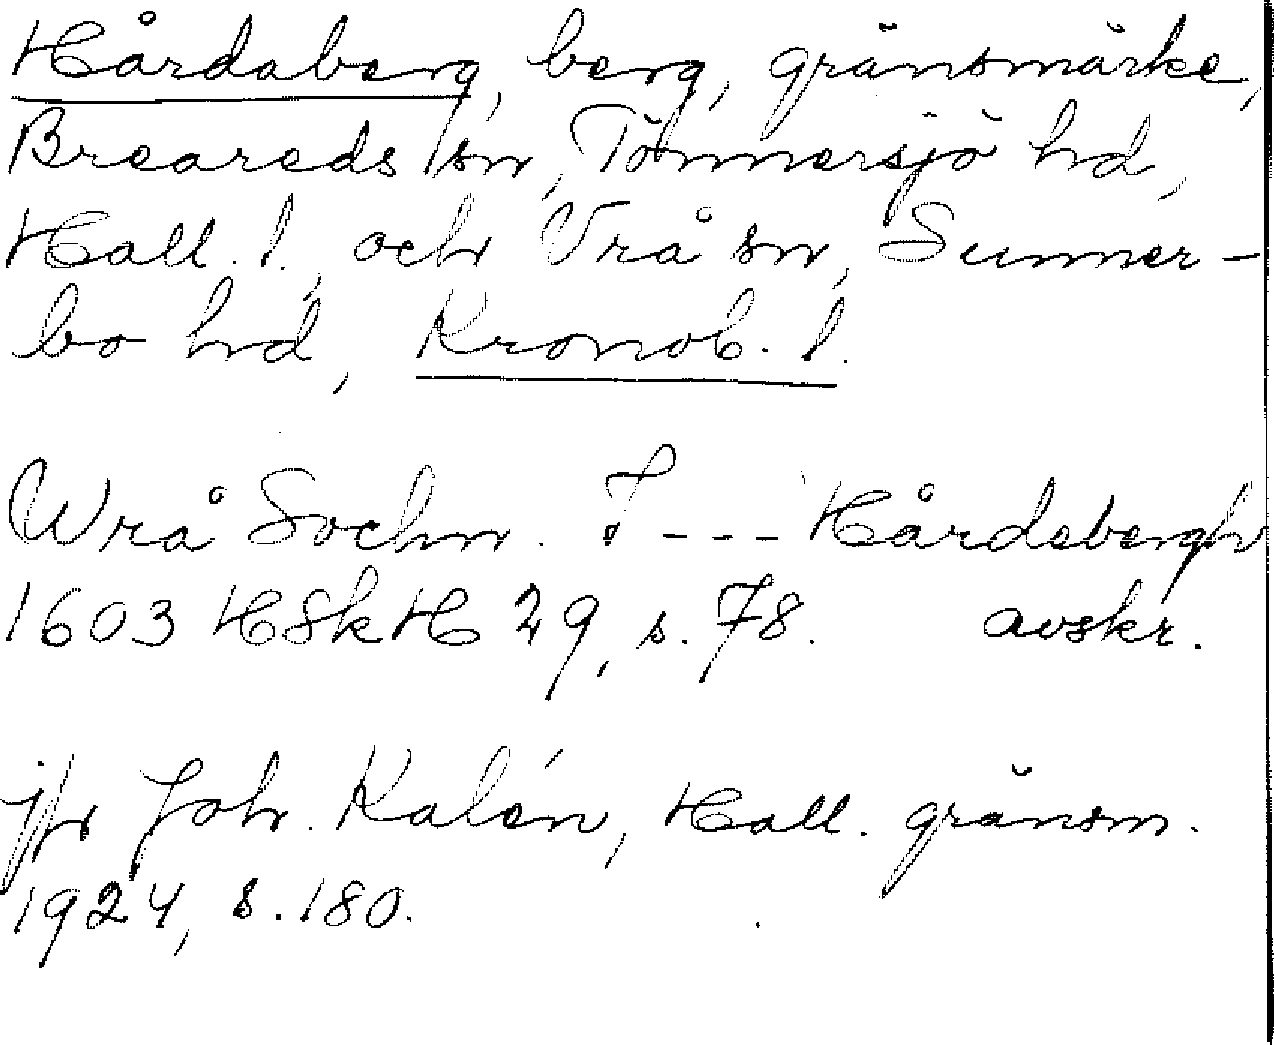 Hårdaberg, berg, gränsmärke,
Breareds sn, Tönnersjö hd,
Hall. l., och Vrå sn, Sunner-
bo hd, Kronob. l.
Wrå Sochn. I --- Hårdebergh
1603 HSkH 29, s. 78. avskr.
jfr Joh. Kalén, Hall. gränsm.
1924, s. 180.